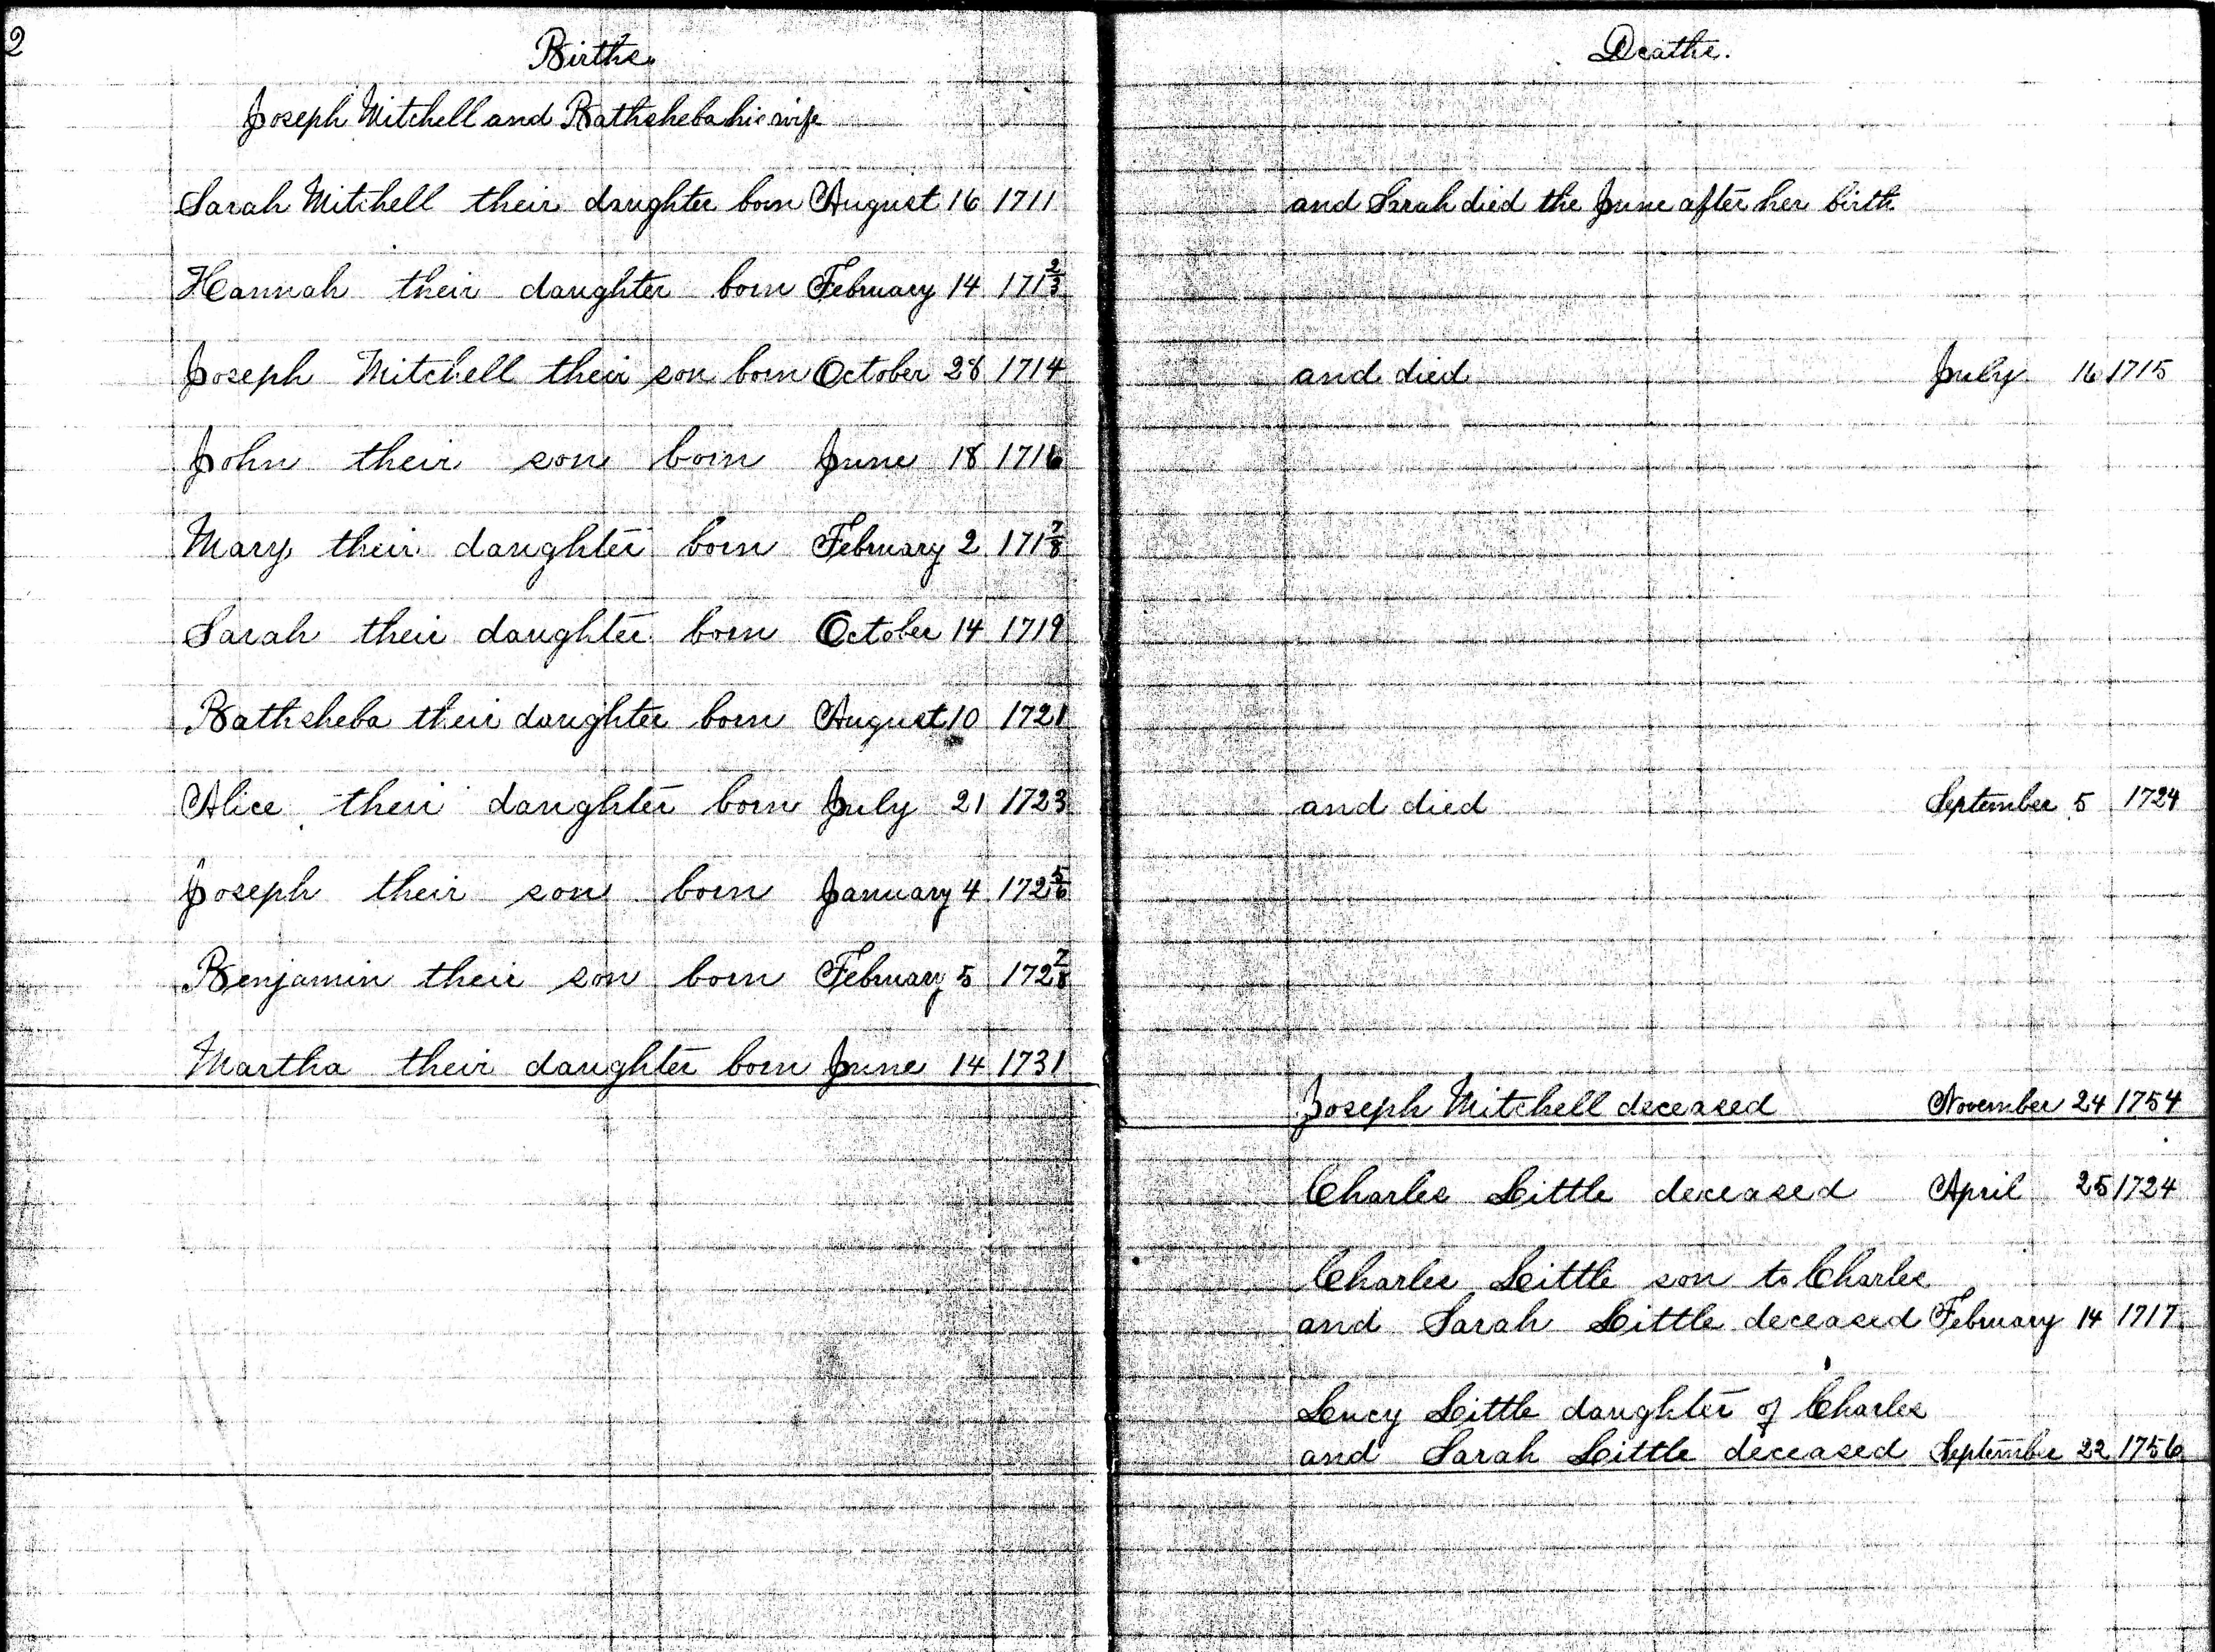 2
Births.
Joseph Mitchell and Bathsheba his wife
Sarah Mitchell their daughter born August 16 1711
Hannah their daughter born February 14 171 2/3
Joseph Mitchell their son born October 28 1714
John their son born June 18 1716
Mary their daughter born February 2 171 7/8
Sarah their daughter born October 14 1719
Bathsheba their daughter born August 10 1721
Alice their daughter born July 21 1723
Joseph their son born January 4 172 5/6
Benjamin their son born February 5 172 7/8
Martha their daughter born June 14 1731
Deaths.
and Sarah died the June after her birth
and died July 16 1715
and died September 5 1724
Joseph Mitchell deceased November 24 1754
Charles Little deceased April 25 1724
Charles Little son to Charles
and Sarah Little deceased February 14 1717
Lucy Little daughter of Charles
and Sarah Little deceased September 22 1756